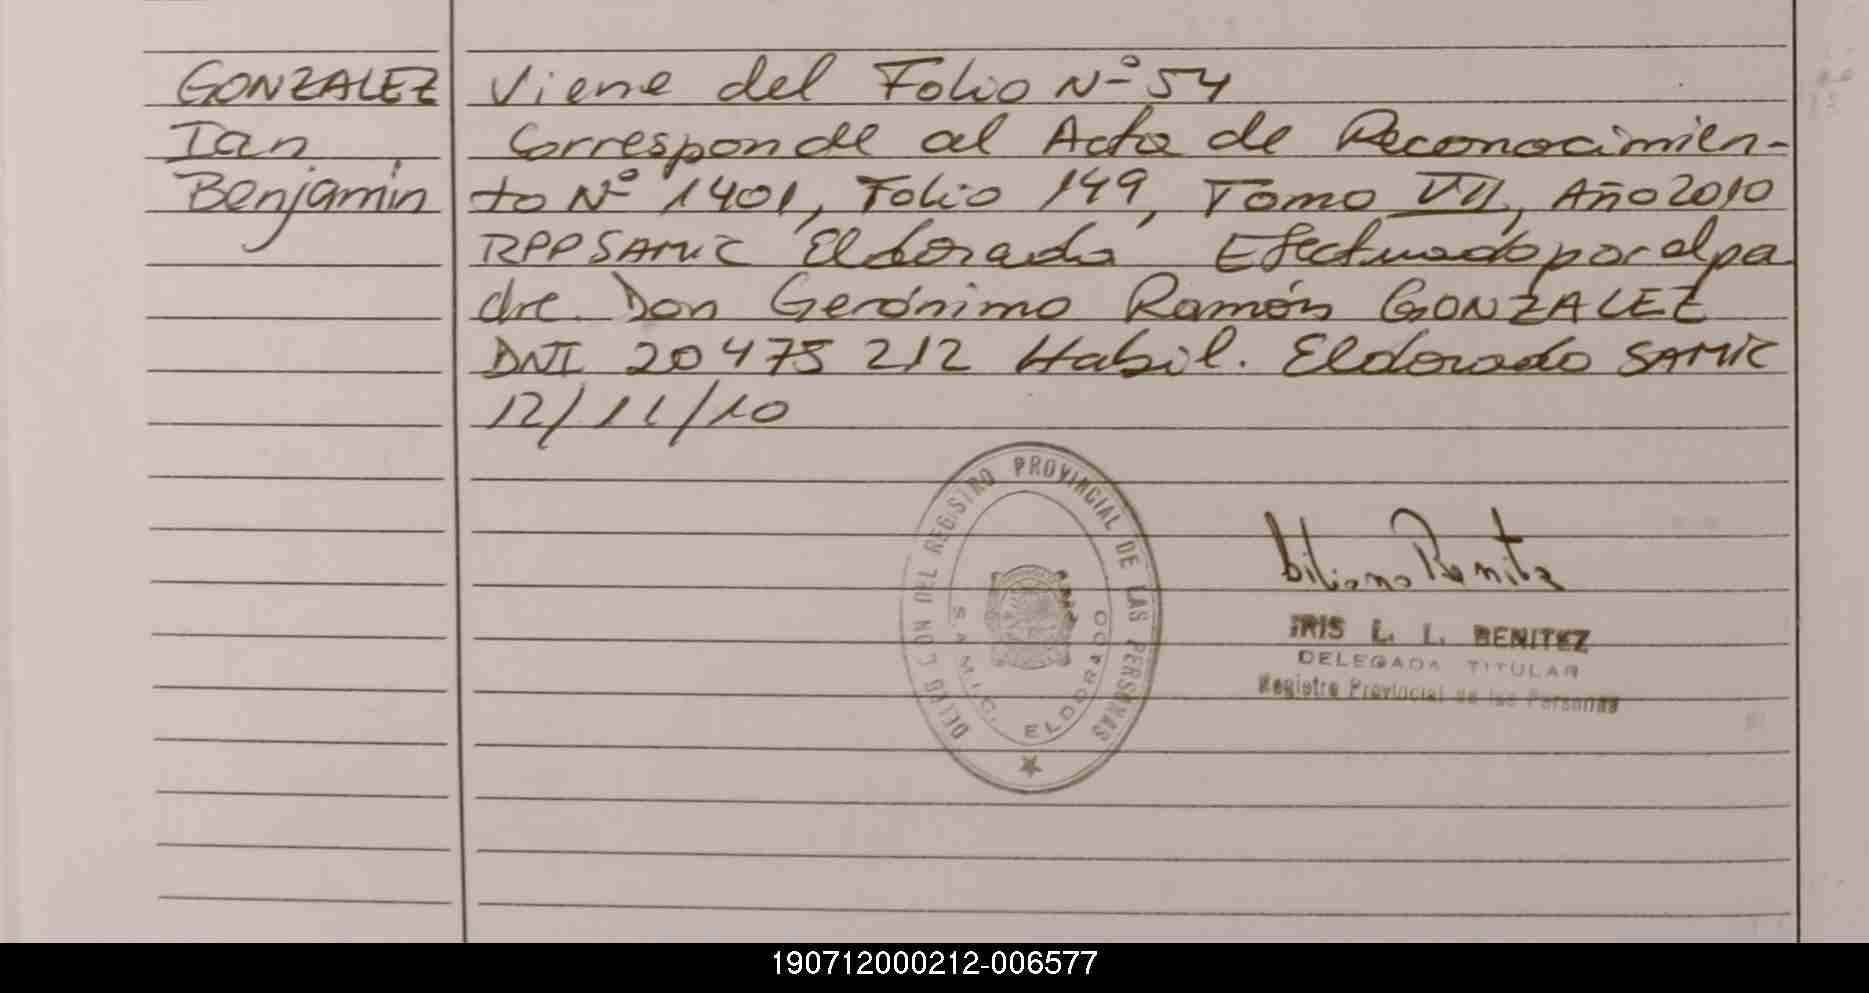 GONZALEZ
Ian
Benjamin
Viene del Folio Nº 54
Corresponde al Acta de Reconocimien-
to Nº 1401, Folio 149, Tomo VII, Año 2010
RPP SAMIC Eldorado Efectuado por el pa
dre Don Gerónimo Ramón GONZALEZ
DNI 20 475 212 Habil. Eldorado SAMIC
12/11/10
DEL REGISTRO PROVINCIAL DE LAS PERSONAS
S.A.M.I.C. ELDORADO
IRIS L. L. BENITEZ
DELEGADA TITULAR
Registro Provincial de las Personas
190712000212-006577